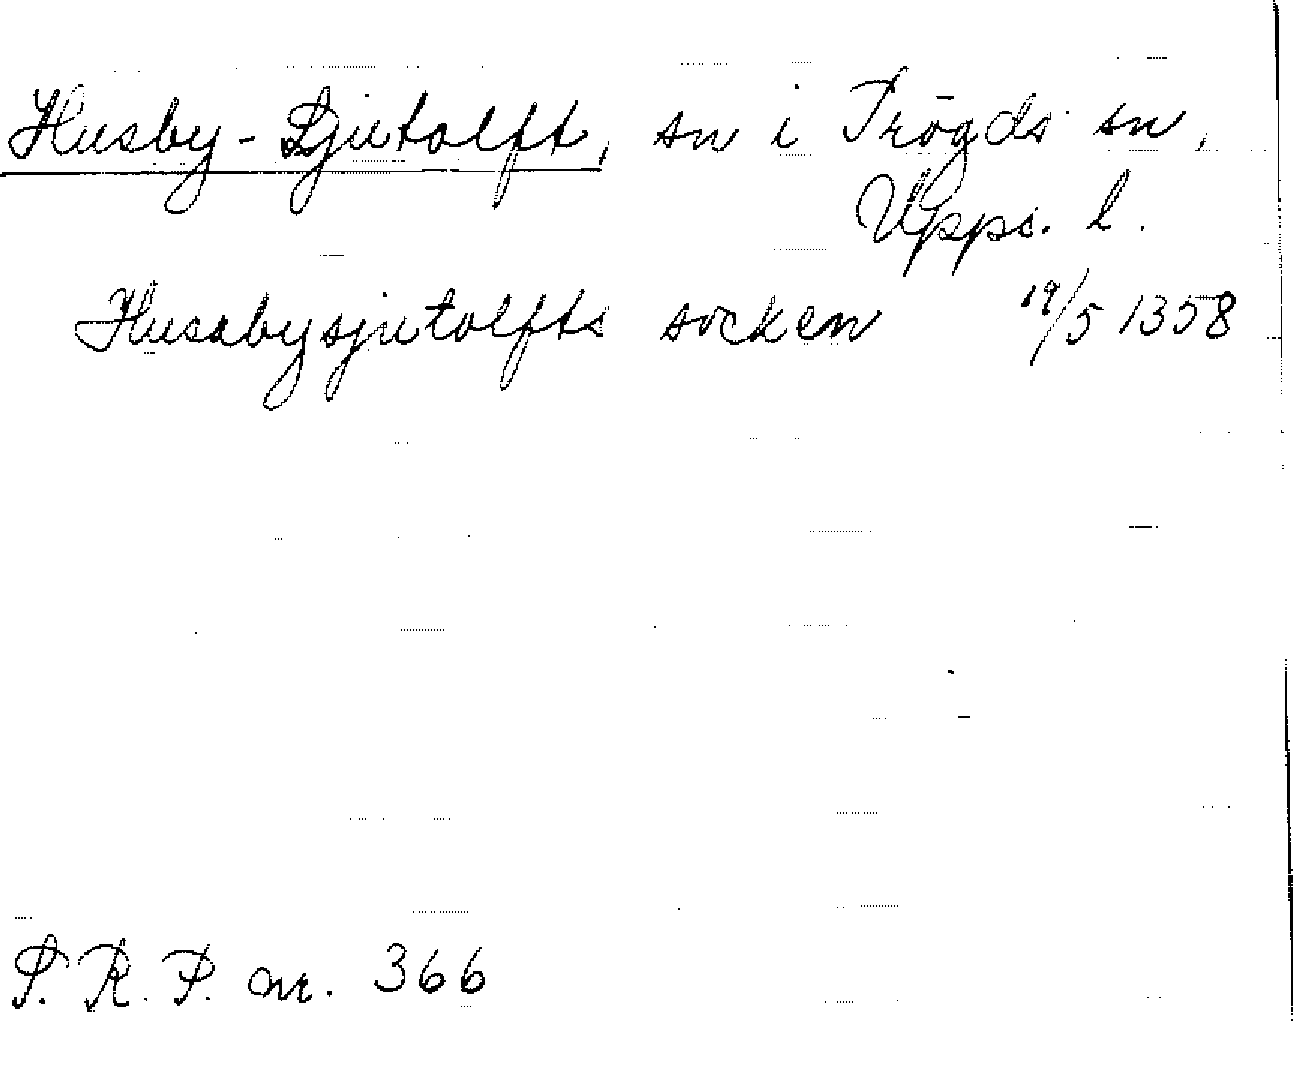 Husby-Sjutolft, sn i Trögds sn,
Upps. l.
Husabysjutolfts socken 19/5 1358
S. R. P. nr. 366